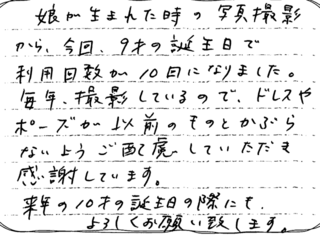 娘が生まれた時の写真撮影
から、今回、9才の誕生日で
利用回数が10回になりました。
毎年、撮影しているので、ドレスや
ポーズが以前のものとかぶら
ないようご配慮していただき
感謝しています。
来年の10才の誕生日の際にも
よろしくお願い致します。